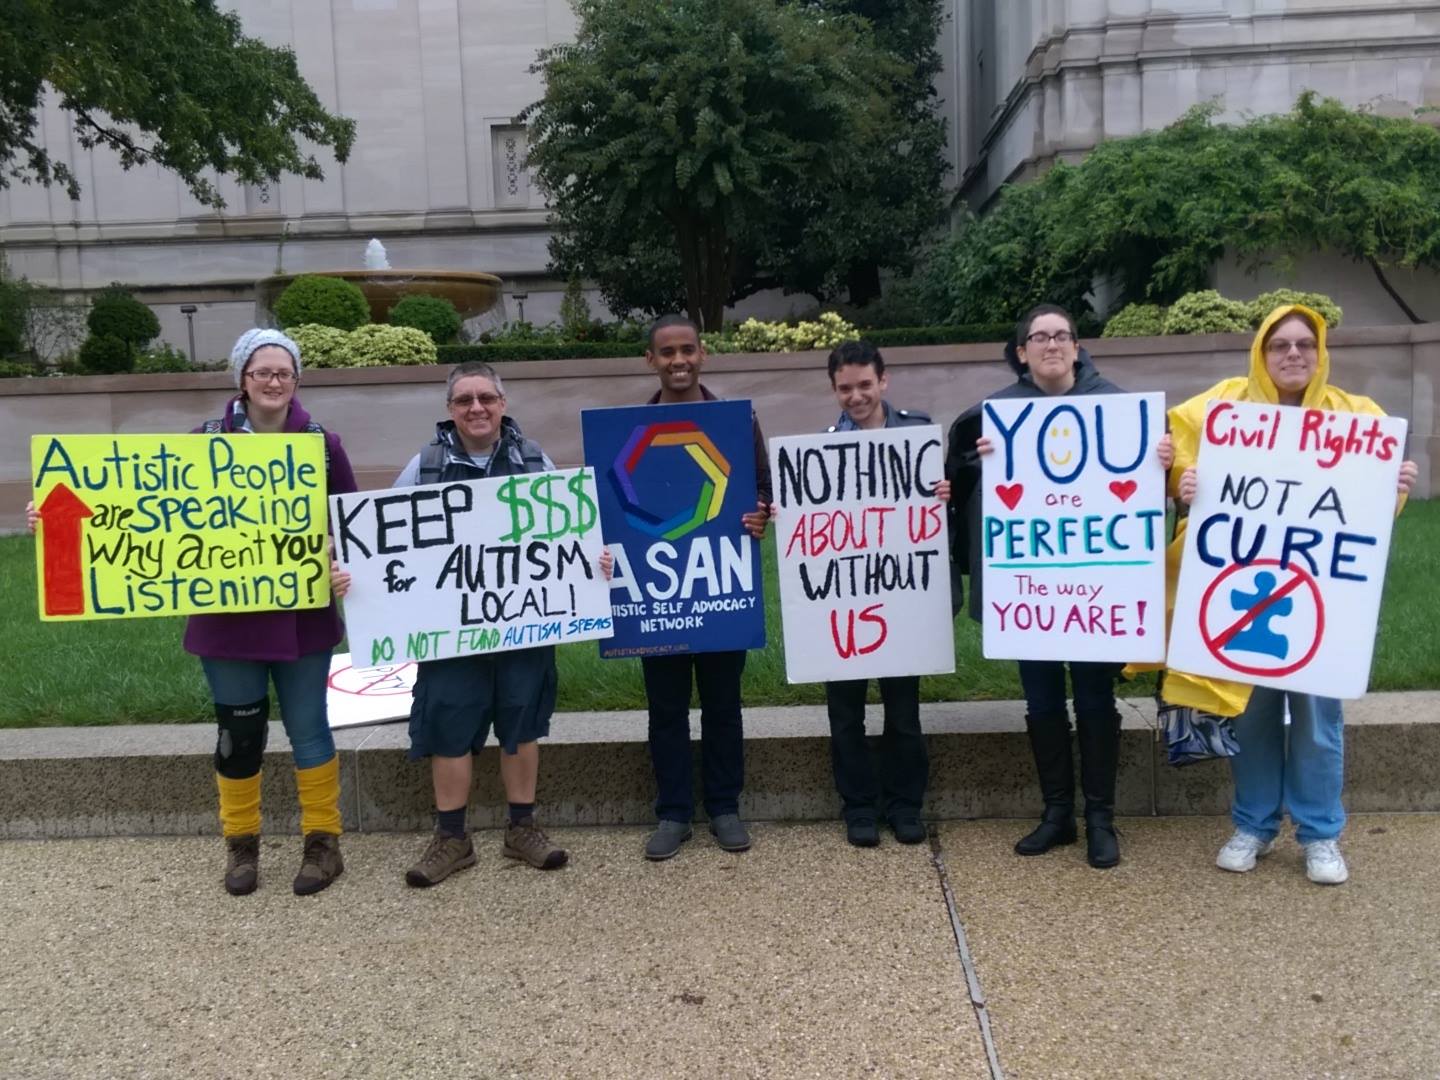 Autistic People
are speaking
Why aren't YOU
Listening?
KEEP $$$
for AUTISM
LOCAL!
DO NOT FUND AUTISM SPEAKS
ASAN
TISTIC SELF ADVOCACY
NETWORK
AUTISTICADVOCACY.ORG
NOTHING
ABOUT US
WITHOUT
US
YOU
are
PERFECT
The way
YOU ARE!
Civil Rights
NOT A
CURE